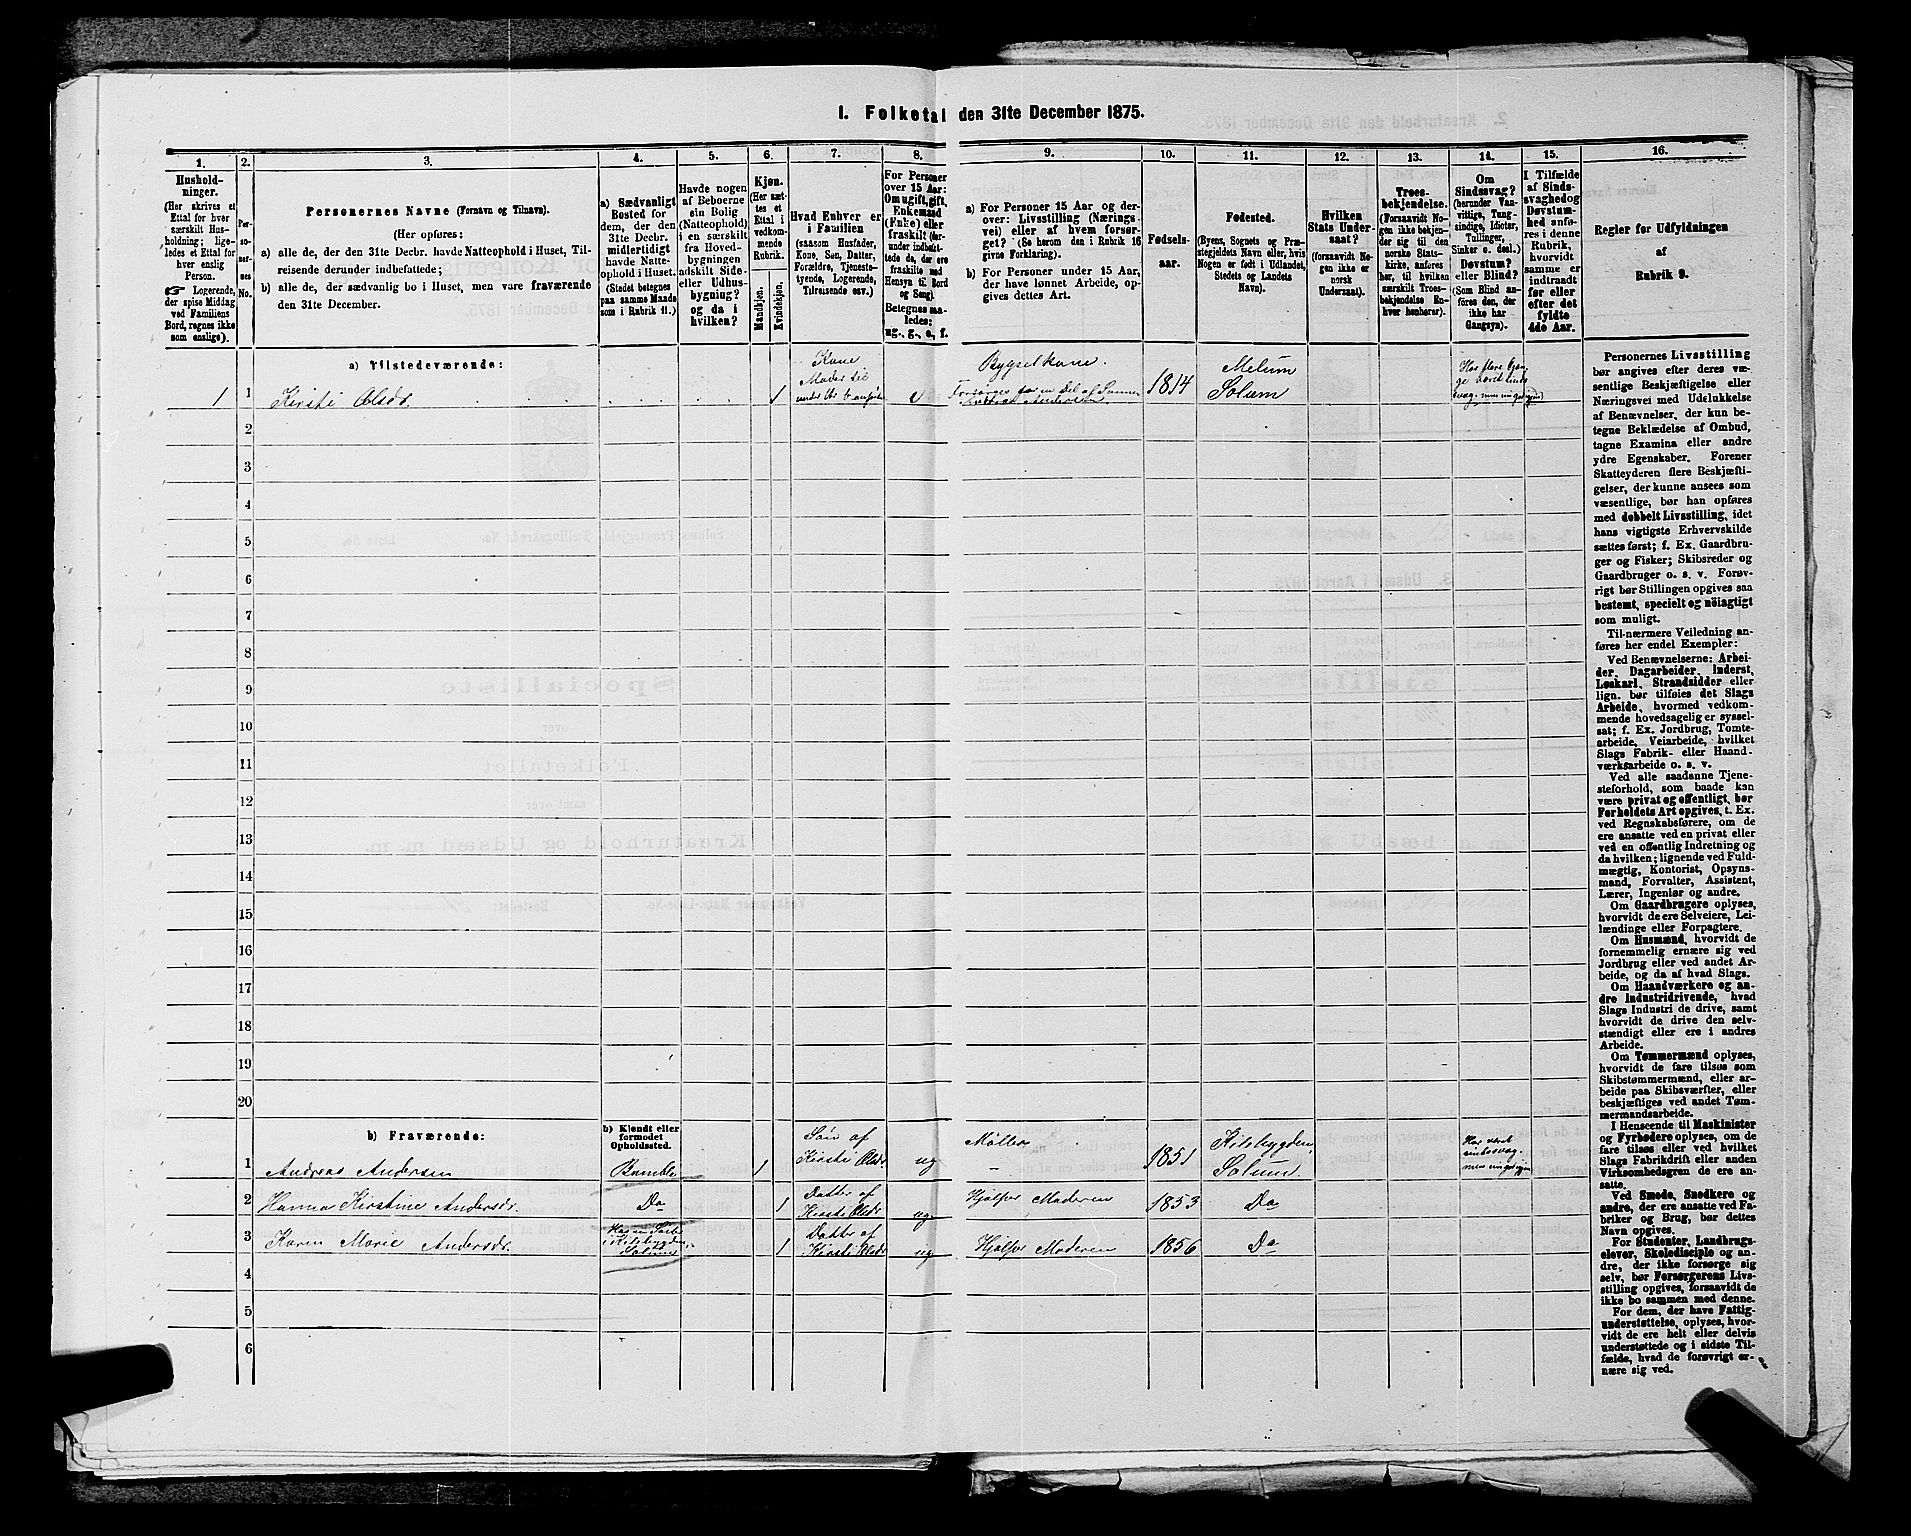 1. Folketal den 31te December 1875.
1.
2.
3.
4.
5.
6.
7.
8.
9.
10.
11.
12.
13.
14.
15.
16.
Hushold-
ninger.
(Her skrives et
Ettal for hver
særskilt Hus-
holdning; lige-
ledes et Ettal for
hver enslig
Person.
☛ Logerende,
der spise Middag
ved Familiens
Bord, regnes ikke
som enslige).
Per-
so-
ner-
nes
No.
Personernes Navne (Fornavn og Tilnavn).
(Her opføres:
a) alle de, der den 31te Decbr. havde Natteophold i Huset, Til-
reisende derunder indbefattede;
b) alle de, der sædvanlig bo i Huset, men vare fraværende
den 31te December.
a) Sædvanligt
Bosted for
dem, der den
31te Decbr.
midlertidigt
havde Natte-
ophold i Huset.
(Stedet betegnes
paa samme Maade
som i Rubrik 11.)
Havde nogen
af Beboerne
sin Bolig
(Natteophold)
i en særskilt
fra Hoved-
bygningen
adskilt Side-
eller Udhus-
bygning?
og da i
hvilken?
Kjøn.
(Her sæt-
tes et
Ettal i
vedkom-
mende
Rubrik.
Mandkjøn.
Kvindekjøn.
Hvad Enhver er
i Familien
(saasom Husfader,
Kone, Søn, Datter,
Forældre, Tjeneste-
tyende, Logerende,
Tilreisende osv.)
For Personer
over 15 Aar:
Om ugift, gift,
Enkemand
(Enke) eller
fraskilt (her-
under indbefat-
tede de, der ere
fraskilte med
Hensyn til Bord
og Seng).
Betegnes saa-
ledes:
ug., g., e., f.
a) For Personer 15 Aar og der-
over: Livsstilling (Nærings-
vei) eller af hvem forsør-
get? (Se herom den i Rubrik 16
givne Forklaring).
b) For Personer under 15 Aar,
der have lønnet Arbeide, op-
gives dettes Art.
Fødsels-
aar.
Fødested.
(Byens, Sognets og Præ-
stegjeldets Navn eller, hvis
Nogen er født i Udlandet,
Stedets og Landets
Navn).
Hvilken
Stats Under-
saat?
(forsaavidt No-
gen ikke er
norsk
Undersaat).
Troes-
bekjendelse.
(Forsaavidt No-
gen ikke bekjen-
der sig til den
norske Stats-
kirke, anføres
her, til hvilken
særskilt Troes-
bekjendelse En-
hver henhører).
Om
Sindssvag?
(herunder Van-
vittige, Tung-
sindige, Idioter,
Tullinger,
Sinker o. desl.)
Døvstum?
eller Blind?
(Som Blind an-
føres den, der
ikke har
Gangsyn).
I Tilfælde
af Sinds-
svaghed og
Døvstum-
hed anfø-
res i denne
Rubrik,
hvorvidt
samme er
indtraadt
før eller
efter det
fyldte
4de Aar.
Regler for Udfyldningen
af
Rubrik 9.
a) Tilstedeværende:
1 1 Kirsti Olsdr. 1 Kone
Moder til
e
Bygselkone.
1814
Melum
Solum
2
3
4
5
6
7
8
9
10
11
12
13
14
15
16
17
18
19
20
b) Fraværende:
b) Kjendt eller
formodet
Opholdssted.
1 Andreas Andersen Bamble 1 Søn af
Kirsti Olsdr ug Møller 1851 Kilebygden,
Solum.
2 Hanna Kirstine Andersdr. Do 1 Datter af
Kirsti Olsdr ug Hjælper Moderen 1853 Do
3 Karen Marie Andersdr. Kilebygden,
Solum 1 Datter af
Kirsti Olsdr ug Hjælper Moderen 1856 Do
4
5
6
Personernes Livsstilling
bør angives efter deres væ-
sentlige Beskjæftigelse eller
Næringsvei med Udelukkelse
af Benævnelser, der kun be-
tegne Beklædelse af Ombud,
tagne Examina eller andre
ydre Egenskaber. Forener
Skatteyderen flere Beskjæfti-
gelser, der kunne ansees som
væsentlige, bør han opføres
med dobbelt Livsstilling, idet
hans vigtigste Erhvervskilde
sættes først; f. Ex. Gaardbru-
ger og Fisker; Skibsreder og
Gaardbruger o. s. v. Forøv-
rigt bør Stillingen opgives saa
bestemt, specielt og nöiagtigt
som muligt.
Til nærmere Veiledning an-
føres her endel Exempler:
Ved Benævnelserne: Arbei-
der, Dagarbeider, Inderst,
Løskarl, Strandsidder eller
lign. bør tilføies det Slags
Arbeide, hvormed vedkom-
mende hovedsagelig er syssel-
sat; f. Ex. Jordbrug, Tomte-
arbeide, Veiarbeide, hvilket
Slags Fabrik- eller Haand-
værksarbeide o. s. v.
Ved alle saadanne Tjene-
steforhold, som baade kan
være privat og offentligt, bør
Forholdets Art opgives, t. Ex.
ved Regnskabsførere, om de
ere ansatte ved en privat eller
ved en offentlig Indretning og
da hvilken; lignende ved Fuld-
mægtig, Kontorist, Opsyns-
mand, Forvalter, Assistent,
Lærer, Ingeniør og andre.
Om Gaardbrugere oplyses,
hvorvidt de ere Selveiere, Lei-
lændinge eller Forpagtere.
Om Husmænd, hvorvidt de
fornemmelig ernære sig ved
Jordbrug eller ved andet Ar-
beide, og da af hvad Slags.
Om Haandværkere og an-
dre Industridrivende, hvad
Slags Industri de drive, samt
hvorvidt de drive den selv-
stændigt eller ere i andres
Arbeide.
Om Tømmermænd oplyses,
hvorvidt de fare tilsøs som
Skibstømmermænd, eller ar-
beide paa Skibsværfter, eller
beskjæftiges ved andet Tøm-
mermandsarbeide.
I Henseende til Maskinister
og Fyrbødere oplyses, om de
fare tilsøs eller ved hvilket
Slags Fabrikdrift eller anden
Virksomhedsgren de ere an-
satte.
Ved Smede, Snedkere og
andre, der ere ansatte ved Fa-
briker og Brug, bør dettes
Navn opgives.
For Studenter, Landbrugs-
elever, Skoledisciple og an-
dre, der ikke forsørge sig
selv, bør Forsørgerens Livs-
stilling opgives, forsaavidt de
ikke bo sammen med denne.
For dem, der have Fattig-
understøttelse, oplyses, hvor-
vidt de ere helt eller delvis
understøttede og i sidste Til-
fælde, hvad de forøvrigt er-
nære sig ved.